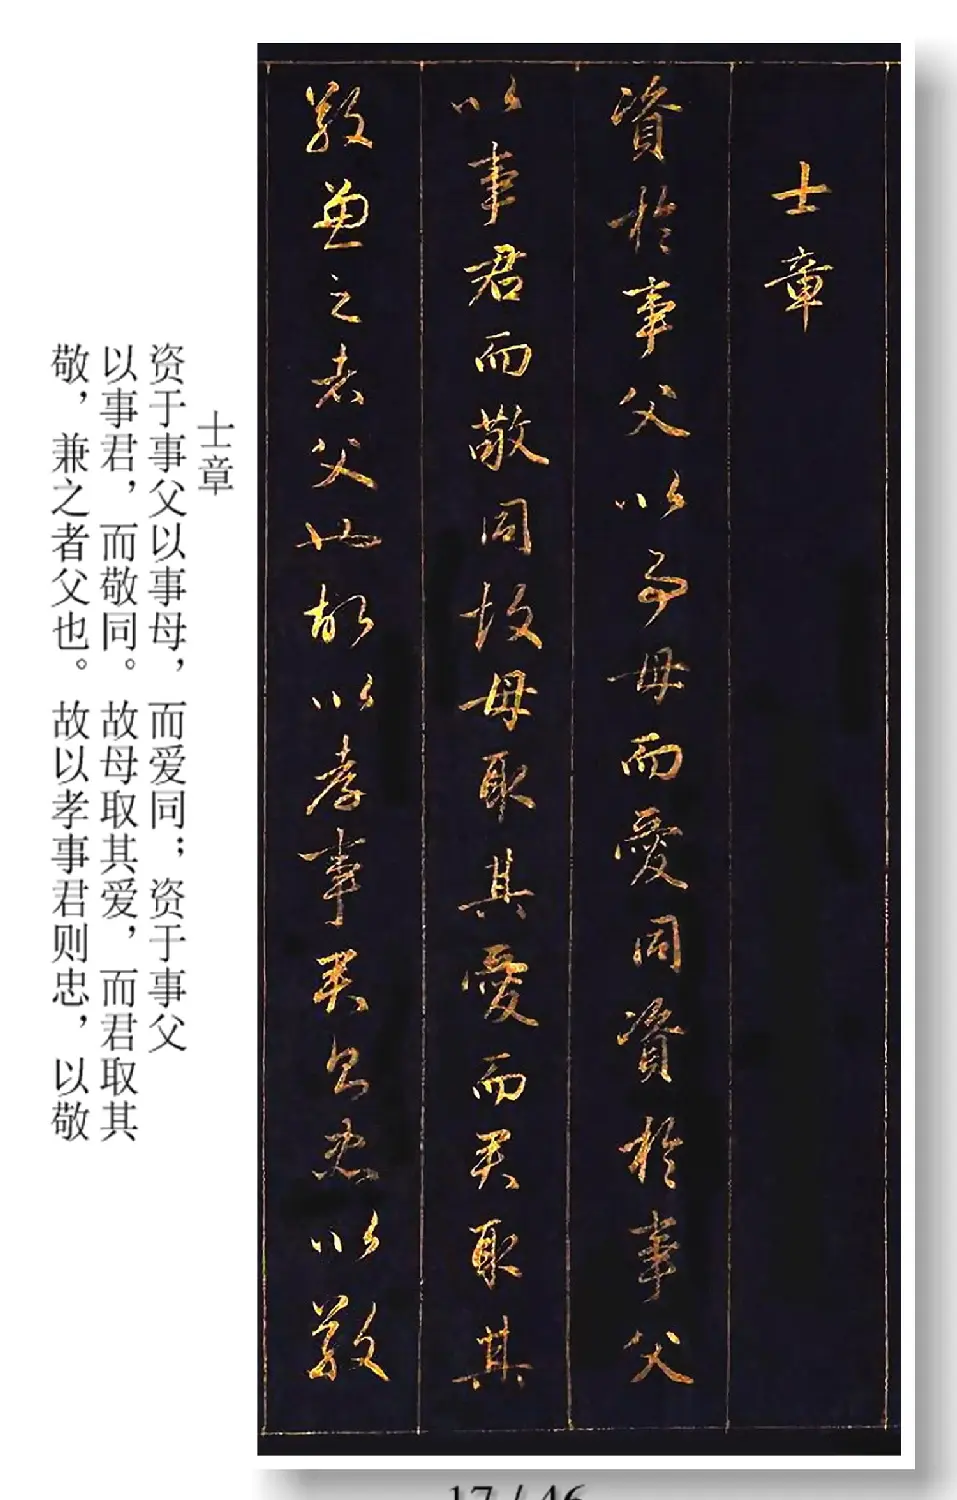 士章
資於事父以事母而愛同資於事父
以事君而敬同故母取其愛而君取其
敬兼之者父也故以孝事君則忠以敬
士章
资于事父以事母，而爱同；资于事父
以事君，而敬同。故母取其爱，而君取其
敬，兼之者父也。故以孝事君则忠，以敬
17 / 46